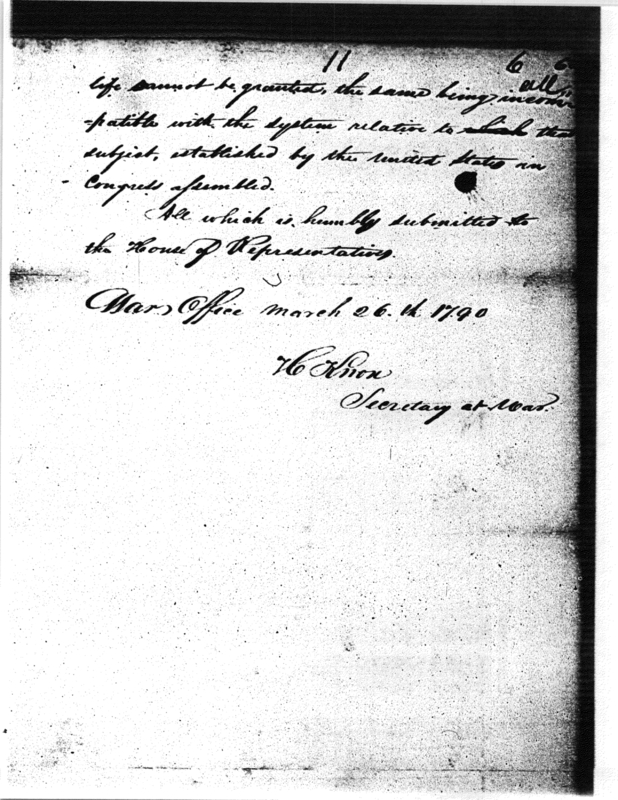 11 6 6
all
life cannot be granted, the same being incom-
-patible with the system relative to which that
subject, established by the united States in
Congress assembled.
All which is humbly submitted to
the House of Representatives.
War Office march 26.th 1790
H Knox
Secretary at War.